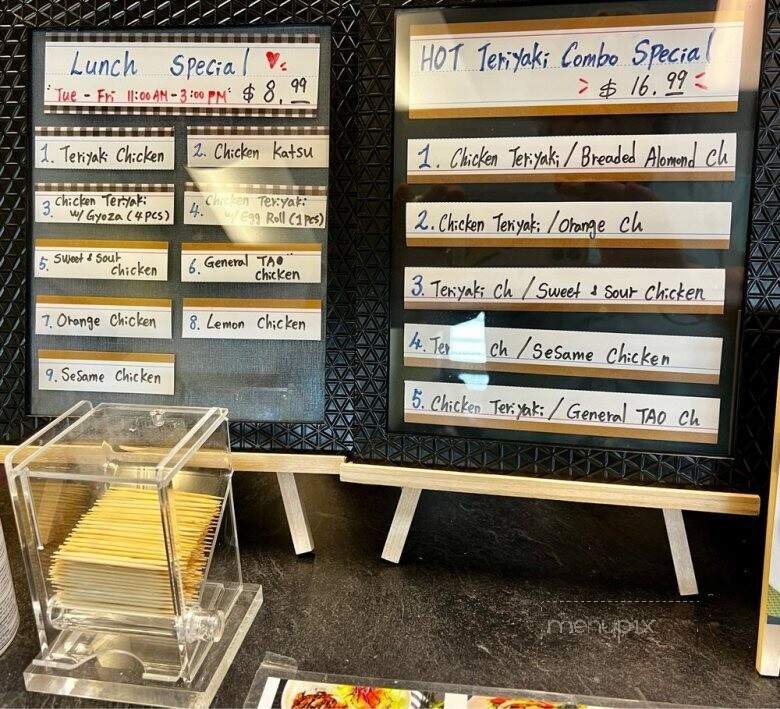 Lunch Special
"Tue - Fri 11:00 AM - 3:00 PM" $ 8.99
1. Teriyaki Chicken
2. Chicken Katsu
3. Chicken Teriyaki
w/ Gyoza (4 pcs)
4. Chicken Teriyaki
w/ Egg Roll (1 pcs)
5. Sweet & Sour
chicken
6. General TAO
chicken
7. Orange Chicken
8. Lemon Chicken
9. Sesame Chicken
HOT Teriyaki Combo Special
$ 16.99
1. Chicken Teriyaki / Breaded Alomond Ch
2. Chicken Teriyaki / Orange Ch
3. Teriyaki Ch / Sweet & Sour Chicken
4. Ch / Sesame Chicken
5. Chicken Teriyaki / General TAO Ch
menupix